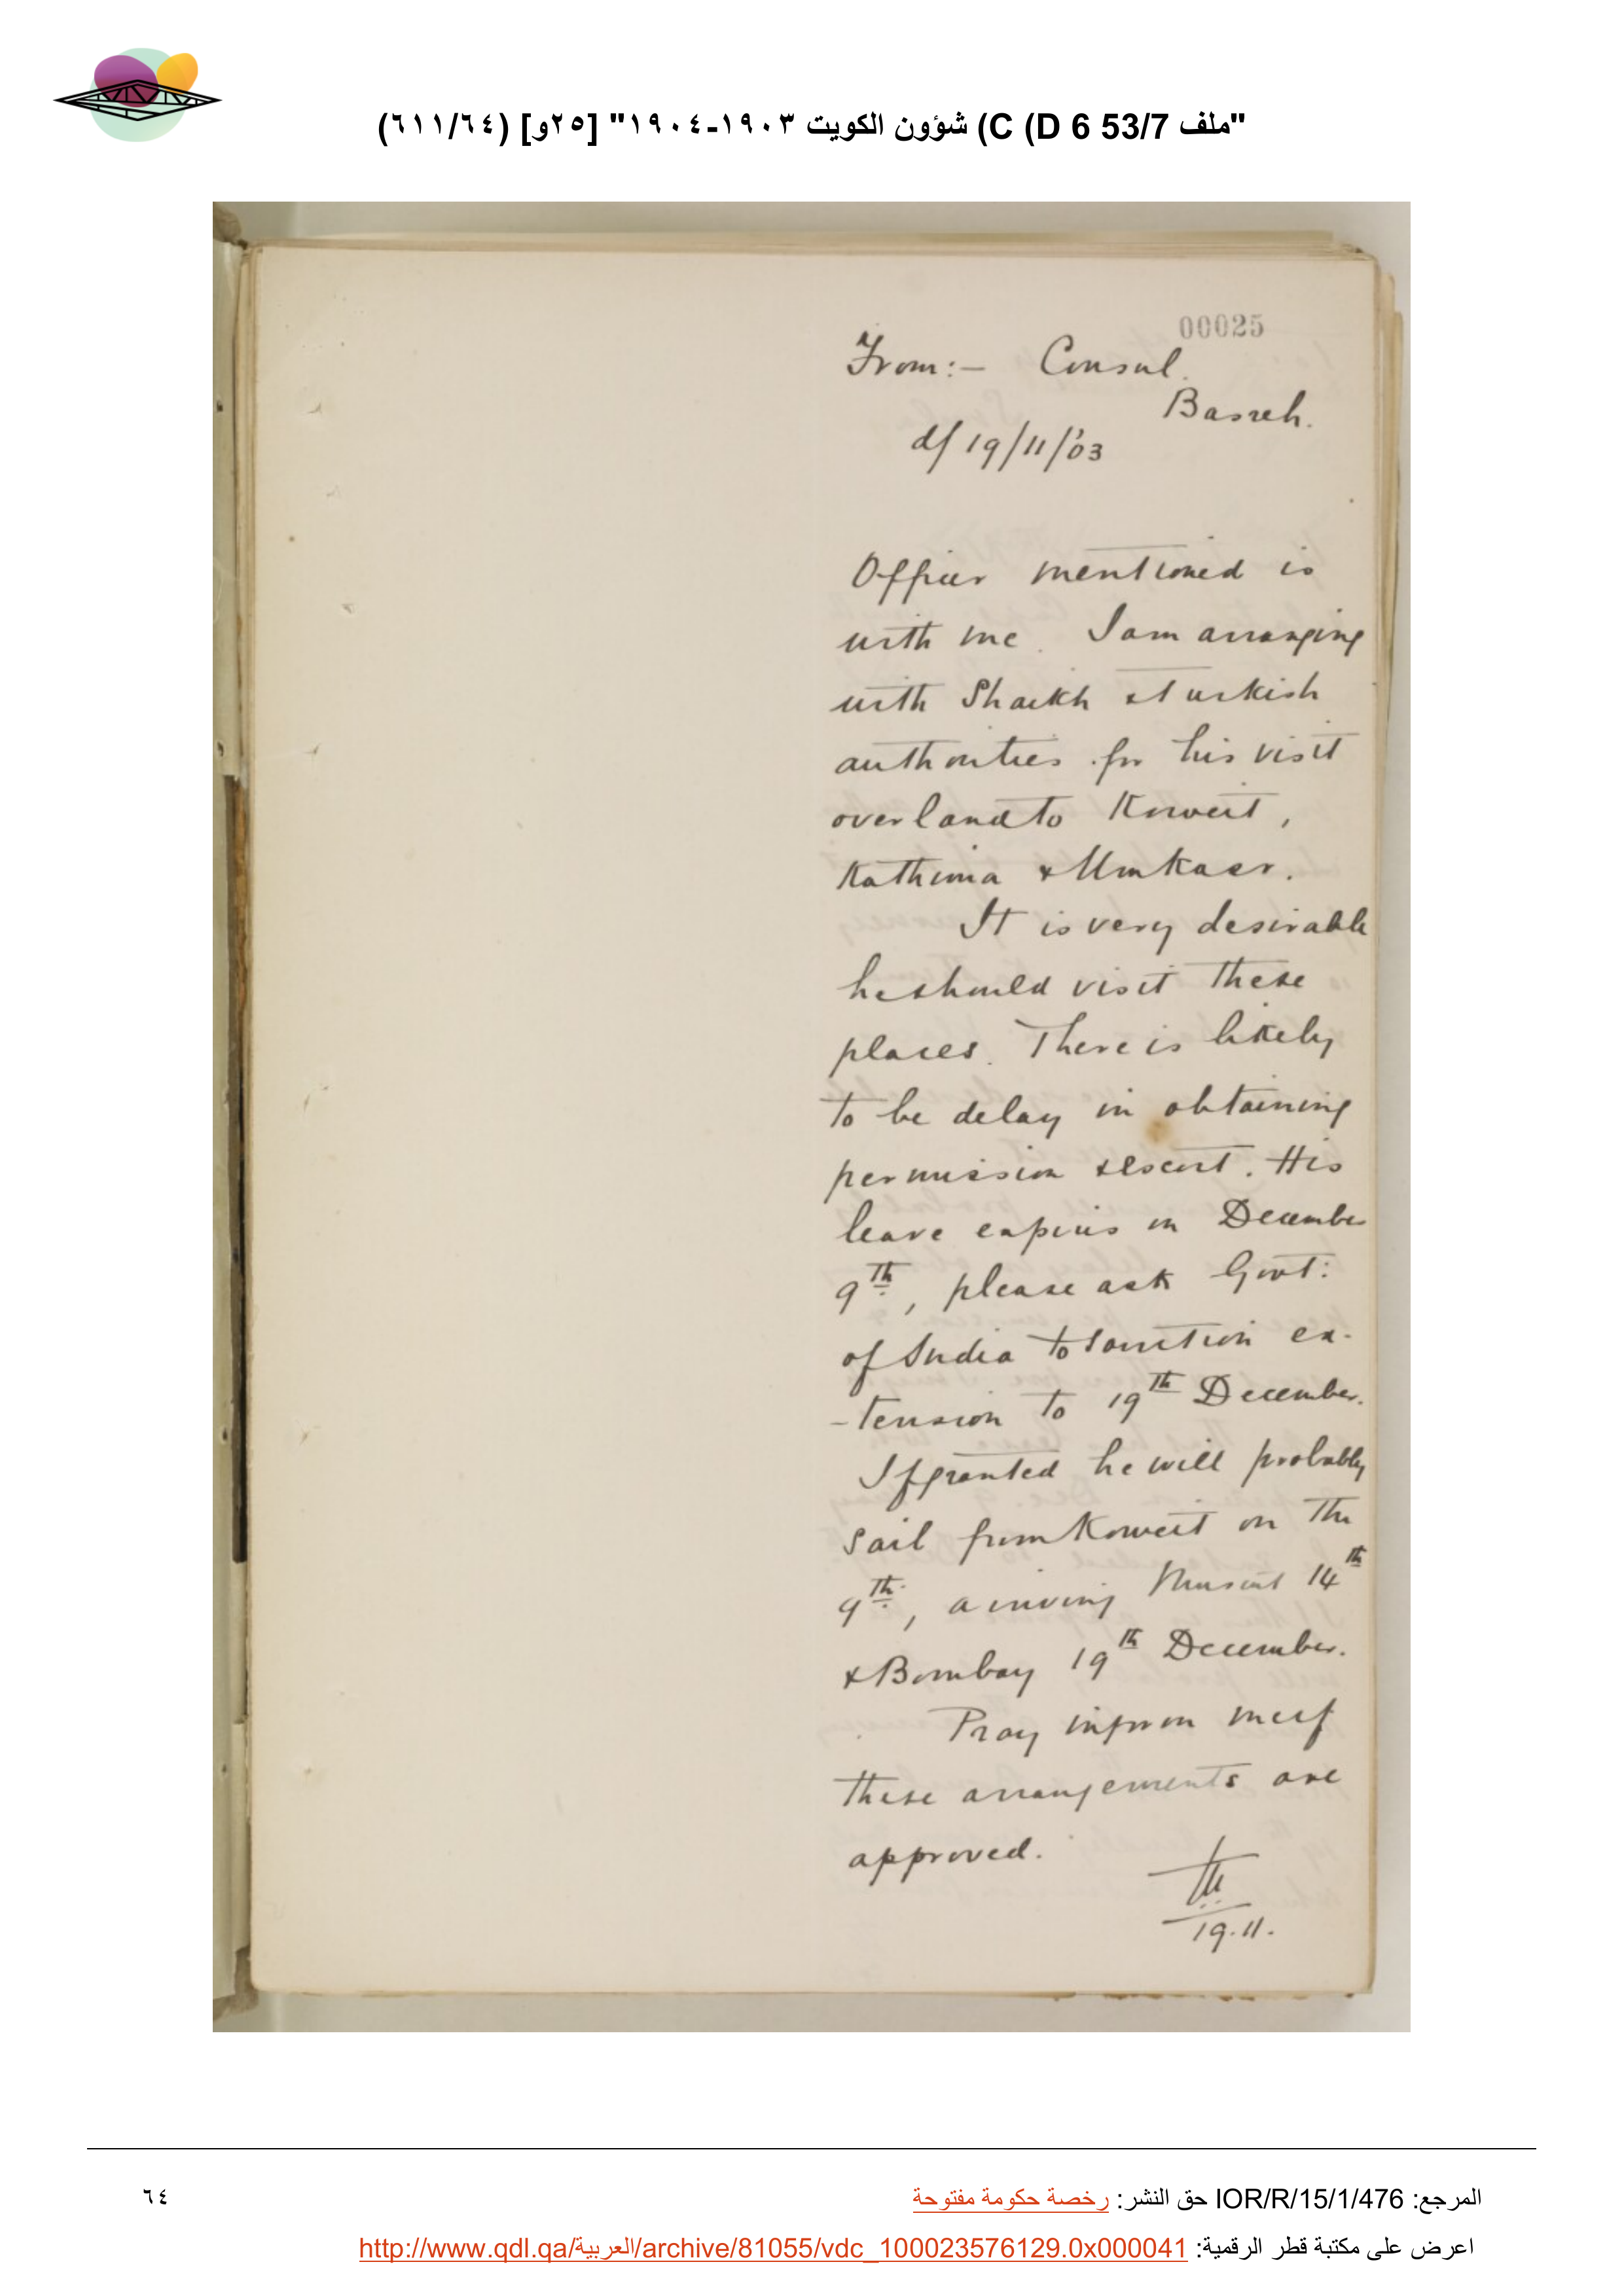 "ملف 53/7 C (D 6) شؤون الكويت ١٩٠٣-١٩٠٤" [٢٥و] (٦١١/٦٤)
00025
From:- Consul.
Basreh.
d/ 19/11/'03
Officer mentioned is
with me. I am arranging
with Shaikh & Turkish
authorities for his visit
overland to Koweit,
Kathima & Umkasr.
It is very desirable
he should visit these
places. There is likely
to be delay in obtaining
permission & escort. His
leave expires on December
9th, please ask Govt:
of India to sanction ex-
-tension to 19th December.
If granted he will probably
sail from Koweit on the
9th, arriving Muscat 14th
& Bombay 19th December.
Pray inform me if
these arrangements are
approved.
19.11.
المرجع: IOR/R/15/1/476 حق النشر: رخصة حكومة مفتوحة
٦٤
اعرض على مكتبة قطر الرقمية: http://www.qdl.qa/العربية/archive/81055/vdc_100023576129.0x000041